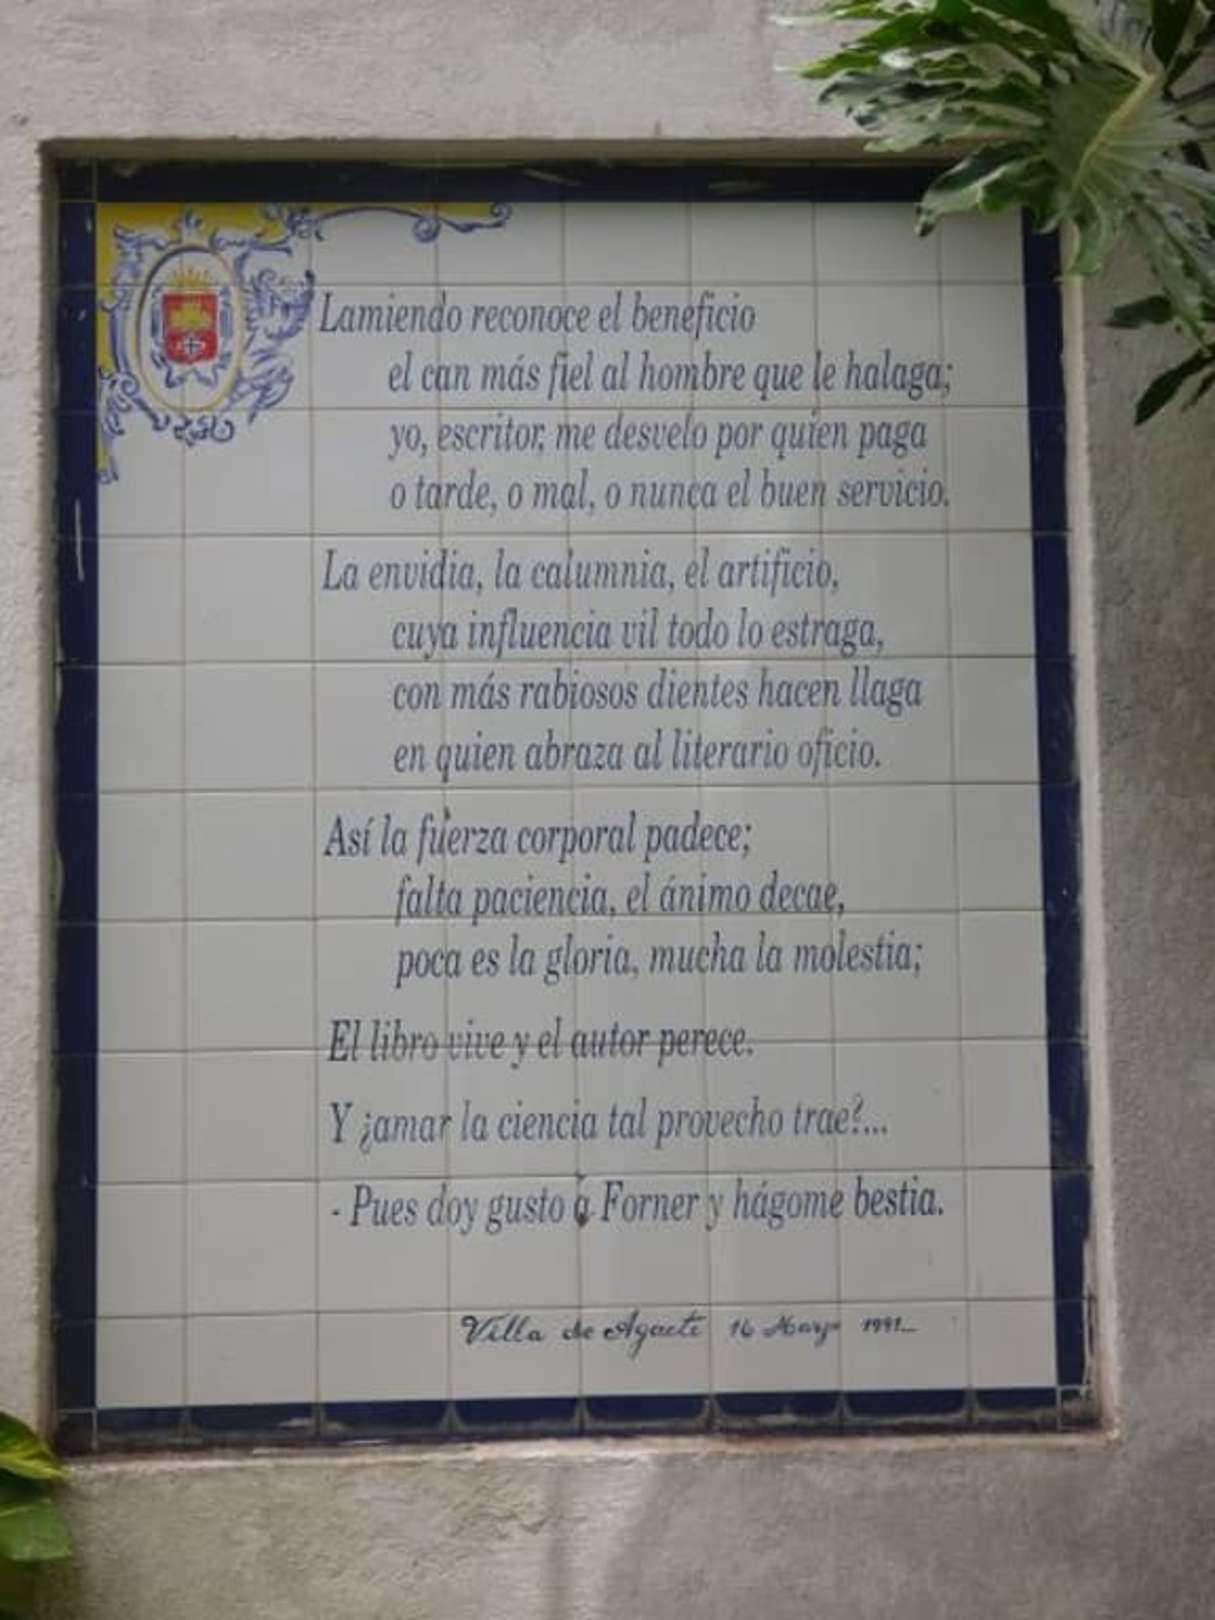 Lamiendo reconoce el beneficio
el can más fiel al hombre que le halaga;
yo, escritor, me desvelo por quien paga
o tarde, o mal, o nunca el buen servicio.
La envidia, la calumnia, el artificio,
cuya influencia vil todo lo estraga,
con más rabiosos dientes hacen llaga
en quien abraza al literario oficio.
Así la fuerza corporal padece;
falta paciencia, el ánimo decae,
poca es la gloria, mucha la molestia;
El libro vive y el autor perece.
Y ¿amar la ciencia tal provecho trae?...
- Pues doy gusto a Forner y hágome bestia.
Villa de Agaete 16 Marzo 1991...